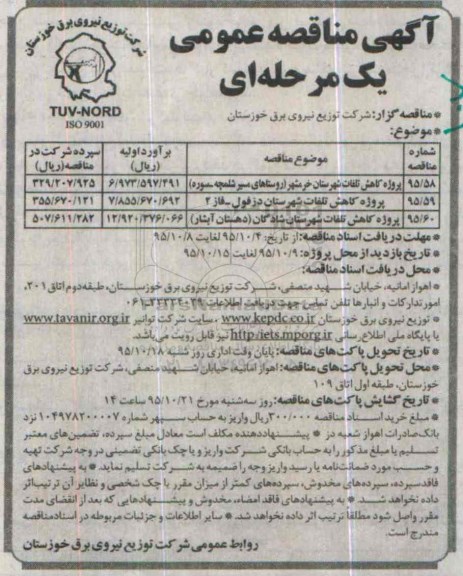 شرکت توزیع نیروی برق خوزستان
TUV-NORD
ISO 9001
آگهی مناقصه عمومی
یک مرحله‌ای
* مناقصه گزار: شرکت توزیع نیروی برق خوزستان
* موضوع:
شماره مناقصه | موضوع مناقصه | برآورد اولیه (ریال) | سپرده شرکت در مناقصه (ریال)
۹۵/۵۸ | پروژه کاهش تلفات شهرستان خرمشهر (روستاهای مسیر شلمچه ـ صوره) | ۶/۹۷۳/۵۹۷/۳۹۱ | ۳۲۹/۲۰۷/۹۲۵
۹۵/۵۹ | پروژه کاهش تلفات شهرستان دزفول ـ فاز ۲ | ۷/۸۵۵/۶۷۰/۶۹۲ | ۳۵۵/۶۷۰/۱۲۱
۹۵/۶۰ | پروژه کاهش تلفات شهرستان شادگان (دهستان آبشار) | ۱۲/۹۲۰/۳۷۶/۰۶۶ | ۵۰۷/۶۱۱/۲۸۲
* مهلت دریافت اسناد مناقصه: از تاریخ: ۹۵/۱۰/۴ لغایت ۹۵/۱۰/۸
* تاریخ بازدید از محل پروژه: ۹۵/۱۰/۹ لغایت ۹۵/۱۰/۱۵
* محل دریافت اسناد مناقصه:
* اهواز امانیه، خیابان شهید منصفی، شرکت توزیع نیروی برق خوزستان، طبقه دوم اتاق ۲۰۱،
امور تدارکات و انبارها تلفن تماس جهت دریافت اطلاعات ۳۳۳۳۴۰۳۹-۰۶۱
* توزیع نیروی برق خوزستان www.kepdc.co.ir، سایت شرکت توانیر www.tavanir.org.ir
یا پایگاه ملی اطلاع رسانی http://iets.mporg.ir نیز قابل رویت می‌باشد.
* تاریخ تحویل پاکت‌های مناقصه: پایان وقت اداری روز شنبه ۹۵/۱۰/۱۸
* محل تحویل پاکت‌های مناقصه: اهواز امانیه، خیابان شهید منصفی، شرکت توزیع نیروی برق
خوزستان، طبقه اول اتاق ۱۰۹
* تاریخ گشایش پاکت‌های مناقصه: روز سه‌شنبه مورخ ۹۵/۱۰/۲۱ ساعت ۱۴
* مبلغ خرید اسناد مناقصه ۳۰۰/۰۰۰ ریال واریز به حساب سپهر شماره ۱۰۴۹۷۸۲۰۰۰۰۷ نزد
بانک صادرات اهواز شعبه در * پیشنهاددهنده مکلف است معادل مبلغ سپرده، تضمین‌های معتبر
تسلیم یا مبلغ مذکور را به حساب بانکی شرکت واریز و یا چک بانکی تضمینی در وجه شرکت تهیه
و حسب مورد ضمانت‌نامه یا رسید واریز وجه را ضمیمه به شرکت تسلیم نماید. * به پیشنهادهای
فاقد سپرده، سپرده‌های مخدوش، سپرده‌های کمتر از میزان مقرر یا چک شخصی و نظایر آن ترتیب اثر
داده نخواهد شد. * به پیشنهادهای فاقد امضاء، مخدوش و پیشنهادهایی که بعد از انقضای مدت
مقرر واصل شود مطلقاً ترتیب اثر داده نخواهد شد. * سایر اطلاعات و جزئیات مربوطه در اسناد مناقصه
مندرج است.
روابط عمومی شرکت توزیع نیروی برق خوزستان